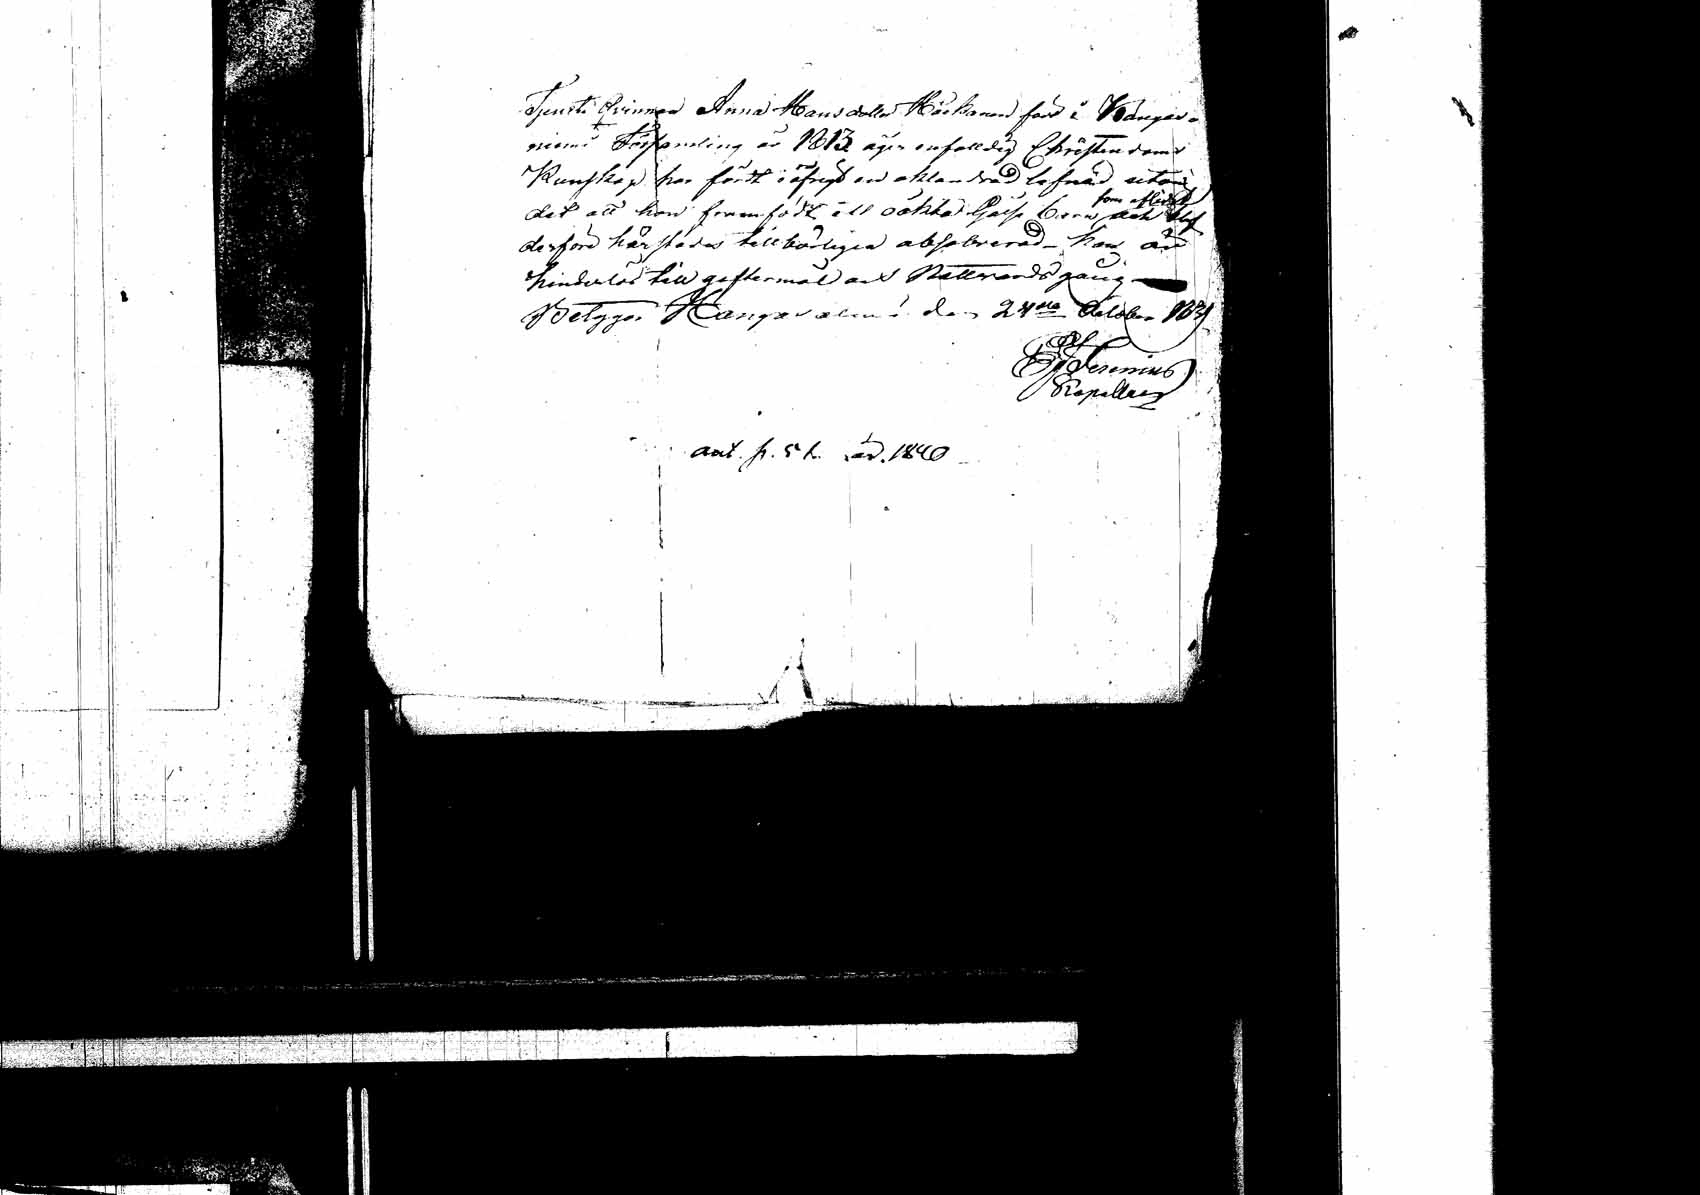 Tjenste Qvinnan Anna Hansdotter Häckanen född i Kangas-
niemi Församling år 1813 äger enfalldig Christendoms
Kunskap har fördt i öfrigt en oklandrad lefnad utom
det att hon framfödt ett oäkta Goss barn som aflidit och blef
derföre härstädes tillbörligen absolverad. hon är
hinderlös till giftermål och Nattvards gång
Betygar Kangasniemi den 24de October 1839
Kapellan
ant. p. 52. år. 1840